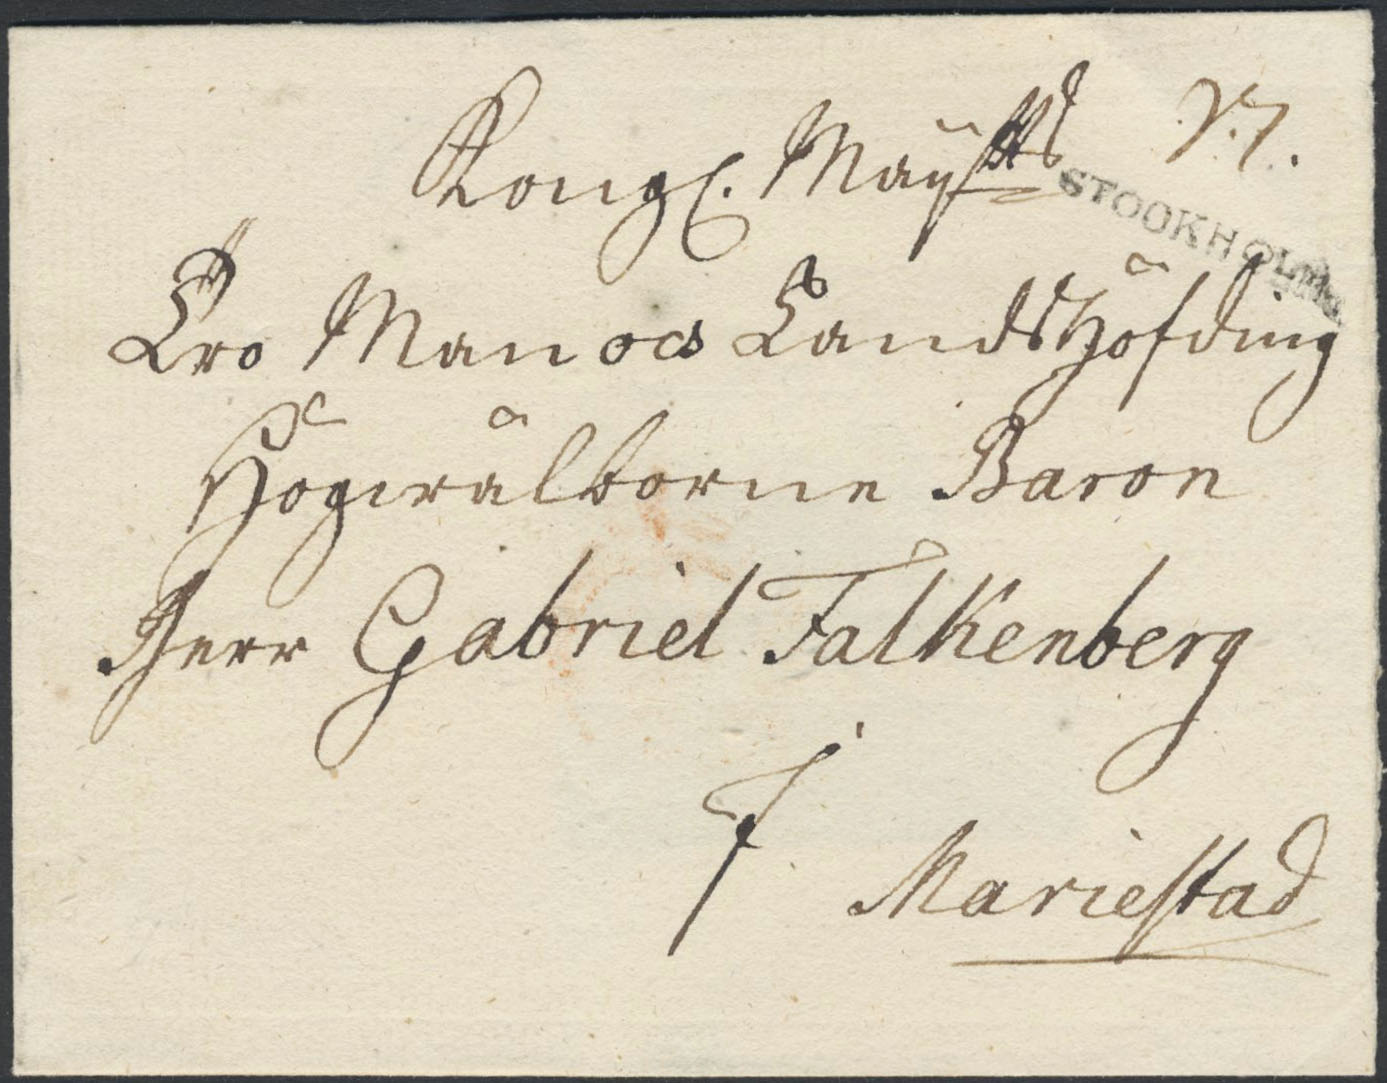 Kongl. Maÿtts
STOCKHOLM
Tro Man ocs LandsHöfding
Högwälborne Baron
Herr Gabriel Falkenberg
i
Mariestad